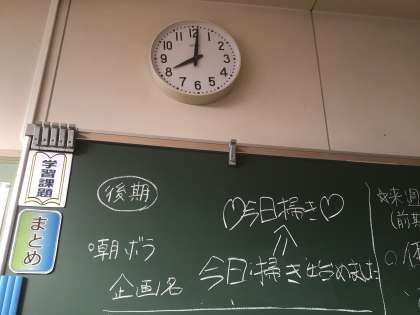 12
11 1
10 2
9 3
8 4
7 5
6
学習課題
まとめ
後期
♡今日掃き♡
朝ボラ
企画名
今日掃き始めました
☆来週
(前期